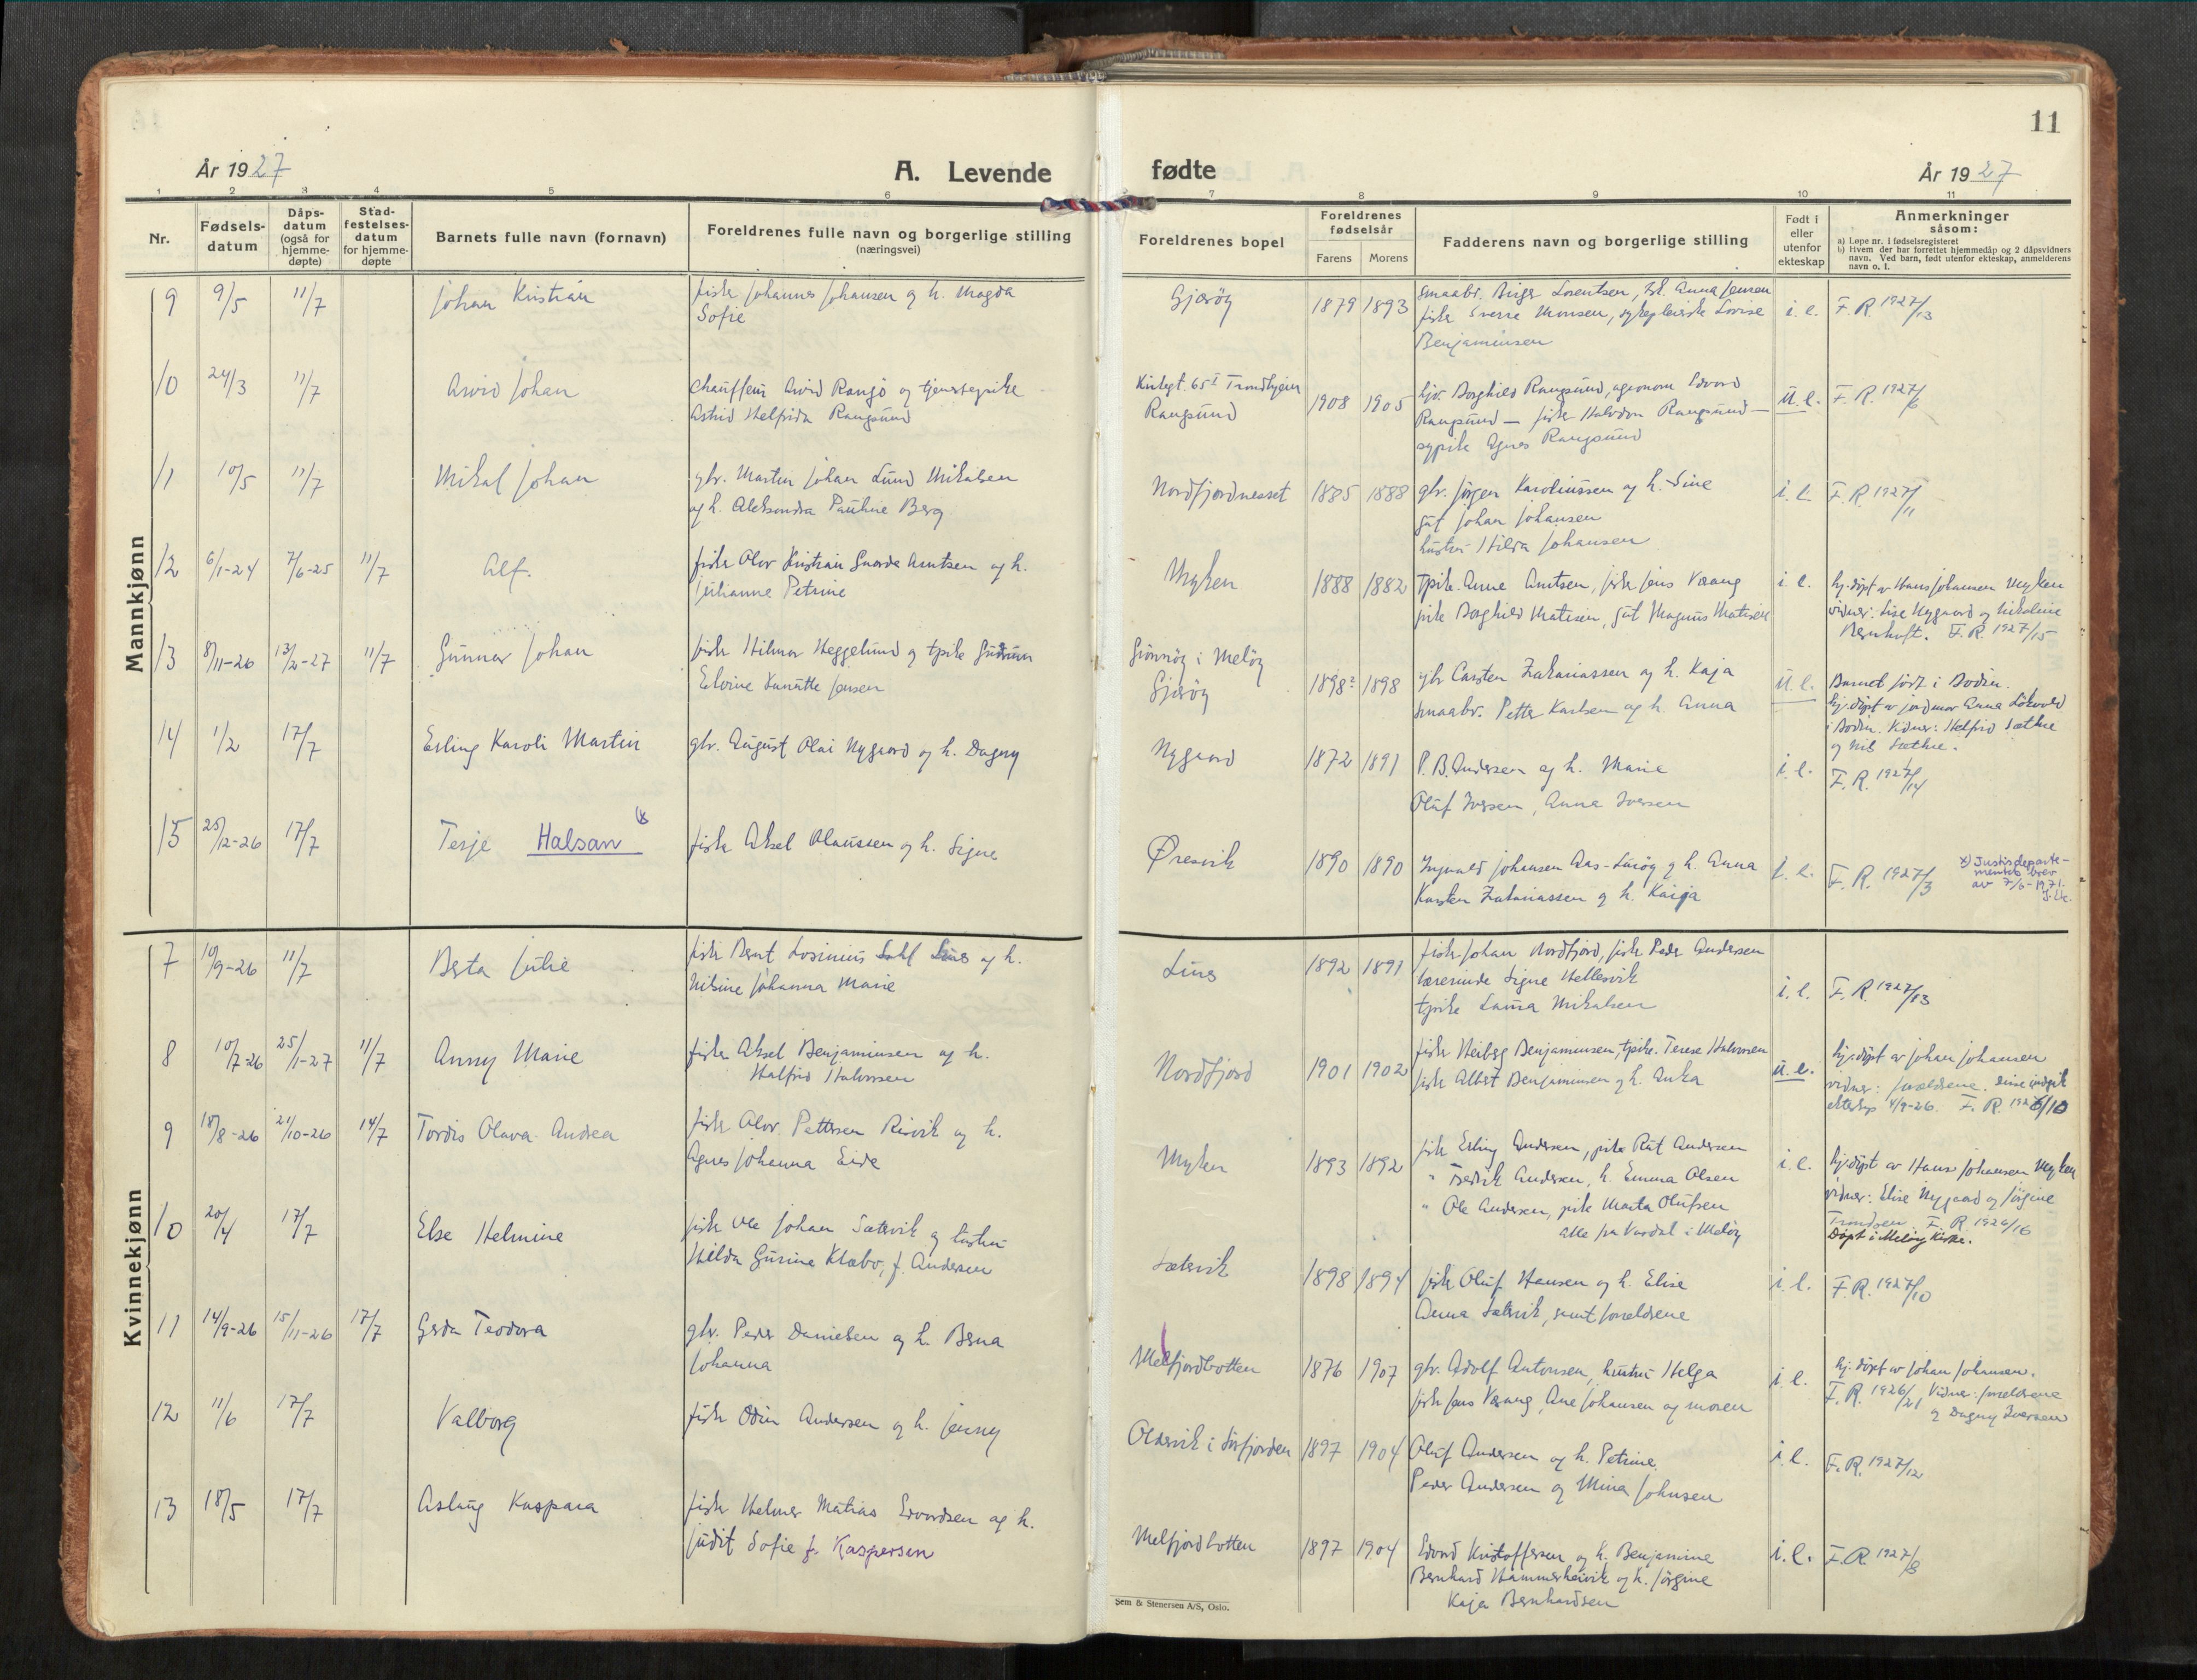 11
År 1927
A. Levende
fødte
År 1927
1 2 3 4 5 6 7 8 9 10 11
Nr.
Fødsels-
datum
Dåps-
datum
(også for
hjemme-
døpte)
Stad-
festelses-
datum
for hjemme-
døpte
Barnets fulle navn (fornavn)
Foreldrenes fulle navn og borgerlige stilling
(næringsvei)
Foreldrenes bopel
Foreldrenes
fødselsår
Farens Morens
Fadderens navn og borgerlige stilling
Født i
eller
utenfor
ekteskap
Anmerkninger
såsom:
a) Løpe nr. i fødselsregisteret
b) Hvem der har forrettet hjemmedåp og 2 dåpsvidners
navn. Ved barn, født utenfor ekteskap, anmelderens
navn o. l.
Mannkjønn
9 9/5 11/7 Johan Kristian fisker Johannes Johansen og h. Magda
Sofie
Gjærøy 1879 1893 smaabr. Birger Lorentsen, Anna Jensen
fisker Sverre Monsen, sykepleierske Lovise
Benjaminsen
i. e. F. R. 1927/13
10 24/3 11/7 Arvid Johan chauffeur Arvid Rangø og tjenestepike
Astrid Helfrida Rangsund
65 I Trondhjem
Rangsund
1908 1905 Borghild Rangsund, agronom Edvard
Rangsund — fisker Halvdan Rangsund —
sypike Agnes Rangsund
u. e. F. R. 1927/6
11 10/5 11/7 Mikal Johan gbr. Martin Johan Lund Mikalsen
og h. Aleksandra Pauline Berg
Nordfjordnesset 1885 1888 gbr. Jørgen Karoliussen og h. Sine
gut Johan Johansen
hustru Hilda Johansen
i. e. F. R. 1927/11
12 6/1-24 7/6-25 11/7 Alf. fisker Olov Kristian Amtsen og h.
Julianne Petrine
Myken 1888 1882 Tpike. Anne Amtsen, fisker Jens Værang
pike Borghild Matisen, gut Magnus Matisen
i. e. hj. døpt av Hans Johansen Myken
vidner: Lise Nygaard og Nikoline
Bernhoft. F. R. 1927/15
13 8/11-26 13/2-27 11/7 Gunnar Johan fisker Hilmar Heggelund og tpike Gudrun
Elvine Jensen
Grønnøy i Meløy
Gjærøy
1898? 1898 gbr Carsten Zakariassen og h. Kaja
smaabr. Petter Karlsen og h. Anna
u. e. Barnet født i Bodin.
hj. døpt av jordmor Anna Løkvold
i Bodin. Vidner: Helfrid Sæthre
og Nils Sæthre.
14 1/2 17/7 Erling Karoli Martin gbr. August Olai Nygaard og h. Dagny
Nygaard 1872 1891 P. B. Andersen og h. Marie
Oluf Iversen, Anna Iversen
i. e. F. R. 1927/14
15 25/12-26 17/7 Terje Halsan x) fisker Aksel Olaussen og h. Signe
Øresvik 1890 1890 Ingvald Johansen Aas-Lurøy og h. Anna
Karsten Zakariassen og h. Kaija
i. e. F. R. 1927/3 x) Justisdeparte-
mentets brev
av 7/6-1971.
Kvinnekjønn
7 10/9-26 11/7 Berta Julie fisker Bernt Losinius og h.
Nilsine Johanna Marie
Lines 1892 1891 fisker Johan Nordfjord, fisker Peder Andersen
lærerinde Signe Hellesvik
tpike Laura Mikalsen
i. e. F. R. 1927/13
8 10/7-26 25/1-27 11/7 Anny Marie fisker Aksel Benjaminsen og h.
Halfrid Halvorsen
Nordfjord 1901 1902 fisker Heiberg Benjaminsen, tpike. Terese Halvorsen
fisker Albert Benjaminsen og h. Anka
u. e. hj. døpt av Johan Johansen
vidner: forældrene. disse indgik
ekteskap 4/9-26. F. R. 1926/10
9 18/8-26 21/10-26 14/7 Tordis Olava Andrea fisker Olov Pettersen Risvik og h.
Agnes Johanna Eide
Myken 1893 1892 fisker Erling Andersen, pike Rut Andersen
" Fredrik Andersen, h. Emma Olsen
" Ole Andersen, pike Marta Olufsen
alle fra Vardal i Meløy
i. e. hj. døpt av Hans Johansen Myken
vidner: Elise Nygaard og Jørgine
Trondsen. F. R. 1926/16
Døpt i Meløy kirke.
10 20/4 17/7 Else Helmine fisker Ole Johan Sætervik og hustru
Hilda Gurine Klæbo, f. Andersen
Sætervik 1898 1894 fisker Oluf Hansen og h. Elise
Anna Sætervik, samt forældrene
i. e. F. R. 1927/10
11 14/9-26 15/11-26 17/7 Gerda Teodora gbr. Peder Danielsen og h. Berna
Johanna
Melfjordbotten 1876 1907 gbr. Adolf Antonsen, hustru Helga
fisker Jens Værang, Ane Johansen og moren
i. e. hj. døpt av Johan Johansen.
F. R. 1926/21 Vidner: forældrene
og Dagny Iversen
12 11/6 17/7 Valborg fisker Odin Andersen og h. Jenny
Oldervik i Sørfjorden 1897 1904 Oluf Andersen og h. Petrine
Peder Andersen og Mina Johnsen
i. e. F. R. 1927/12
13 18/5 17/7 Aslaug Kaspara fisker Helmer Matias Edvardsen og h.
Judit Sofie f. Kaspersen
Melfjordbotten 1897 1904 Edvard Kristoffersen og h. Benjamine
Bernhard Hammerheivik og h. Jørgine
Kaja Bernhardsen
i. e. F. R. 1927/8
Sem & Stenersen A/S, Oslo.